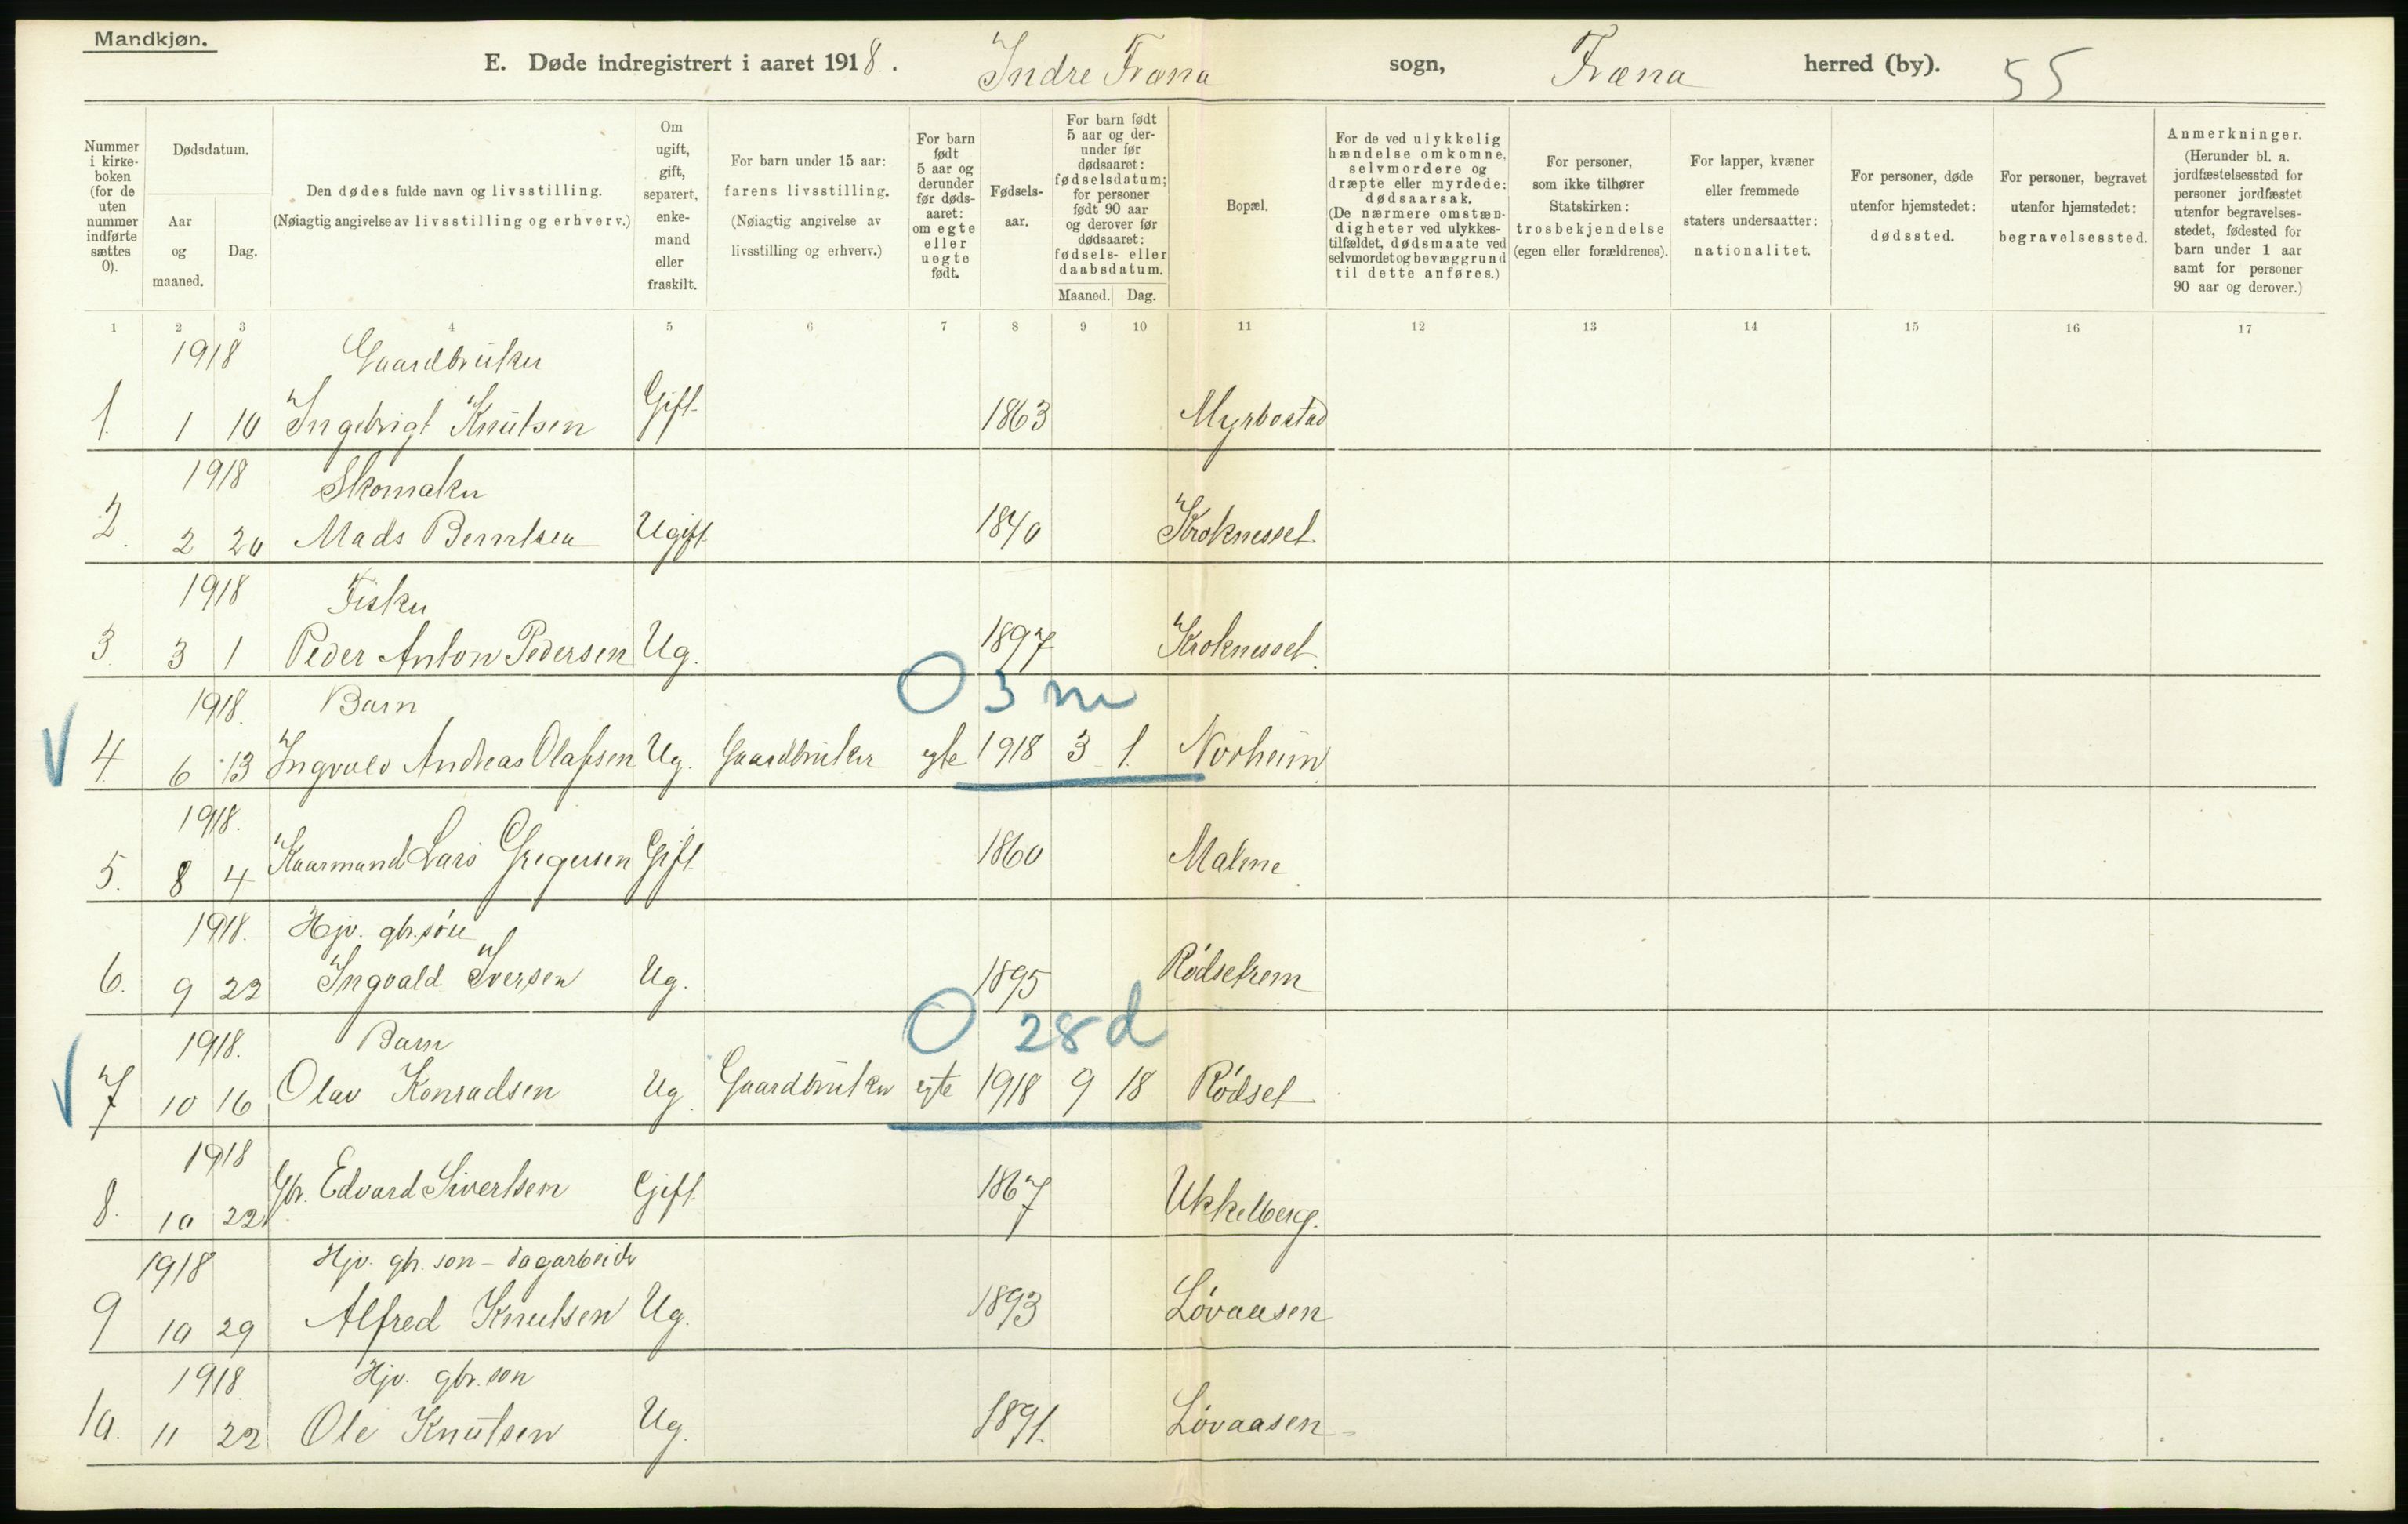 Mandkjøn.
E. Døde indregistrert i aaret 1918. Indre Fræna sogn, Fræna herred (by). 55
Nummer i kirkeboken (for de uten nummer indførte sættes 0).
Dødsdatum.
Aar og maaned.
Dag.
Den dødes fulde navn og livsstilling.
(Nøiagtig angivelse av livsstilling og erhverv.)
Om ugift, gift, separert, enkemand eller fraskilt.
For barn under 15 aar: farens livsstilling.
(Nøiagtig angivelse av livsstilling og erhverv.)
For barn født 5 aar og derunder før dødsaaret: om egte eller uegte født.
Fødselsaar.
For barn født 5 aar og derunder før dødsaaret: fødselsdatum; for personer født 90 aar og derover før dødsaaret: fødsels- eller daabsdatum.
Maaned. Dag.
Bopæl.
For de ved ulykkelig hændelse omkomne, selvmordere og dræpte eller myrdede: dødsaarsak.
(De nærmere omstændigheter ved ulykkestilfældet, dødsmaate ved selvmordet og bevæggrund til dette anføres.)
For personer, som ikke tilhører Statskirken: trosbekjendelse (egen eller forældrenes).
For lapper, kvæner eller fremmede staters undersaatter: nationalitet.
For personer, døde utenfor hjemstedet: dødssted.
For personer, begravet utenfor hjemstedet: begravelsessted.
Anmerkninger.
(Herunder bl. a. jordfæstelsessted for personer jordfæstet utenfor begravelsesstedet, fødested for barn under 1 aar samt for personer 90 aar og derover.)
1 2 3 4 5 6 7 8 9 10 11 12 13 14 15 16 17
1918 Gaardbruker
1. 1 10 Ingebrigt Knutsen Gift 1863 Myrbostad
1918 Skomaker
2. 2 20 Mads Berntsen Ugift 1840 Kroknesset
1918 Fisker
3. 3 1 Peder Anton Pedersen Ug. 1897 Kroknesset.
1918. Barn O 3 m
V 4. 6 13 Ingvald Andreas Olafsen Ug. Gaardbruker egte 1918 3 1. Norheim
1918.
5. 8 4 Kaarmand Lars Gregersen Gift 1860 Malme
1918. Hjv. gbr. søn
6. 9 22 Ingvald Iversen Ug. 1895 Rødsetrem
1918. Barn O 28 d
V 7 10 16 Olav Konradsen Ug. Gaardbruker egte 1918 9 18 Rødset
1918
8. 10 22 Gbr. Edvard Sivertsen Gift 1867 Ukkelberg.
1918 Hjv. gbr. son - dagarbeider
9 10 29 Alfred Knutsen Ug. 1893 Løvaasen
1918. Hjv. gbr. son
10. 11 22 Ole Knutsen Ug. 1891. Løvaasen